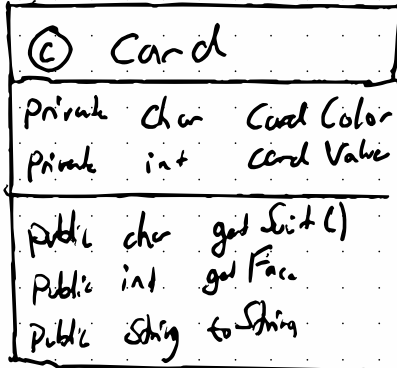 C Card
Private char Card Color
Private int Card Value
public char getSuit()
Public int getFace
Public String toString